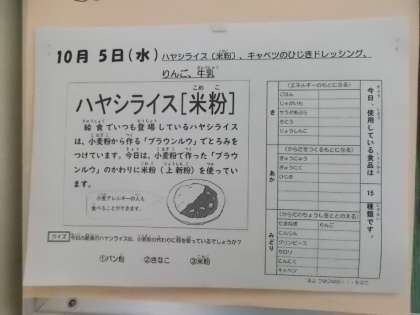 10月 5日(水) ハヤシライス〔米粉〕、キャベツのひじきドレッシング、
りんご、牛乳
ハヤシライス[米粉]
こめこ
給食でいつも登場しているハヤシライス
は、小麦粉から作る「ブラウンルウ」でとろみを
つけています。今日は、小麦粉で作った「ブラウ
ンルウ」のかわりに米粉(上新粉)を使ってい
ます。
小麦アレルギーの人も
食べることができます。
クイズ 今日の給食のハヤシライスは、小麦粉の代わりに何を使っているでしょうか?
①パン粉 ②きなこ ③米粉
今日、使用している食品は 15 種類です。
き
(エネルギーのもとになる)
ごはん
じゃがいも
サラダあぶら
さとう
あか
(からだをつくるもとになる)
ぎゅうにゅう
ぎゅうにく
ひじき
みどり
(からだのちょうしをととのえる)
たまねぎ りんご
にんじん
グリンピース
セロリ
にんにく
キャベツ